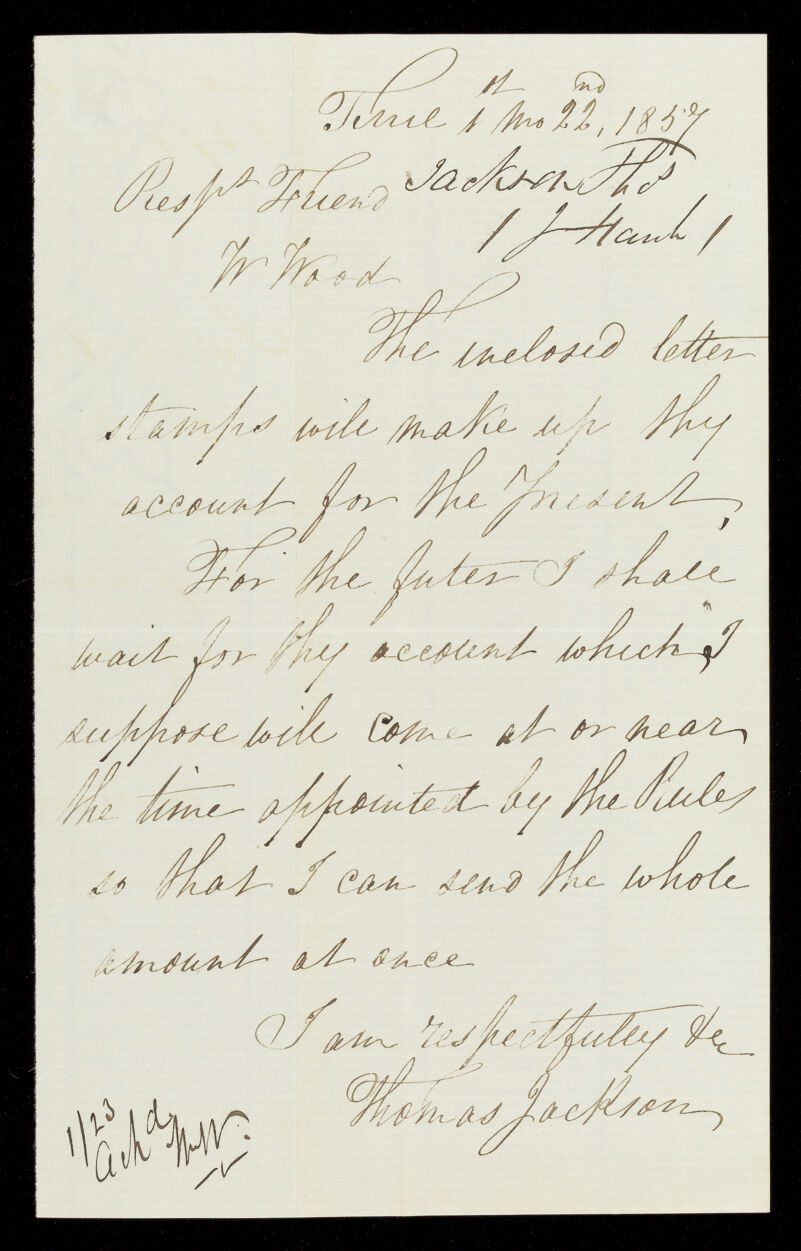 Time 1st Mo 22nd, 1857
Respt Friend Jackson Thos
W Wood
The inclosed letter
stamps will make up thy
account for the Present,
For the futer I shall
wait for thy account which I
suppose will come at or near
the time appointed by the Rules
so that I can send the whole
amount at once
I am respectfuley &c
Thomas Jackson
1/23
Ackd WW.